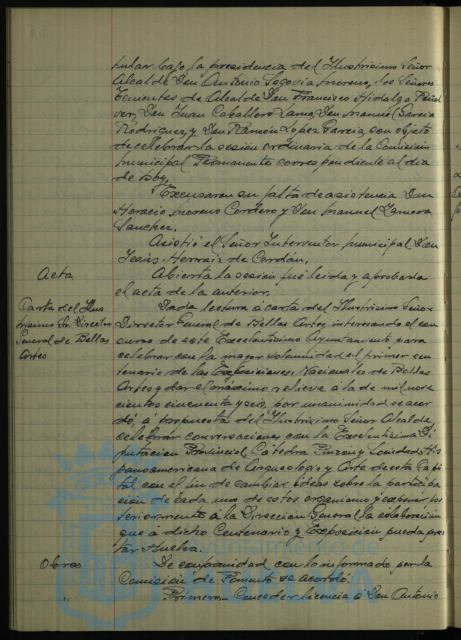 tular bajo la presidencia del Ilustrisimo Señor
Alcalde Don Antonio Segovia Moreno, los Señores
Tenientes de Alcalde Don Francisco Hidalgo Peñal
ver, Don Juan Caballero Lama, Don Manuel Garcia
Rodriguez y Don Ramón Lopez Garcia con objeto
de celebrar la sesion ordinaria de la Comisión
municipal Permanente correspondiente al dia
de hoy.
Excusaron su falta de asistencia Don
Horacio Moreno Cordero y Don Manuel Zamora
Sanchez.
Asistió el Señor Interventor municipal Don
Jesús Herraiz de
Acta
Abierta la sesion fue leida y aprobada
el acta de la anterior.
Carta del Ilus
trisimo Sr. Director
General de Bellas
Artes
Dada lectura á carta del Ilustrisimo Señor
Director General de Bellas Artes, interesando el con
curso de este Excelentisimo Ayuntamiento para
celebrar con la mayor solemnidad el primer cen
tenario de las Exposiciones Nacionales de Bellas
Artes y dar el máximo relieve á la de mil nove
cientos cincuenta y seis, por unanimidad se acor
dó, á propuesta del Ilustrisimo Señor Alcalde,
celebrar conversaciones con la Excelentisima Di
putacion Provincial, Catedra Pinzon y Sociedad His
panoamericana de Arqueologia y Arte de esta Capi
tal con el fin de cambiar ideas sobre la participa
ción de cada uno de estos organismos y exponer pos
teriormente á la Dirección General la colaboración
que á dicho Centenario y Exposición pueda pres
tar Huelva.
Obras
De conformidad con lo informado por la
Comisión de Fomento se acordó:
"
Primero.- Conceder licencia á Don Antonio
Ayuntamiento de